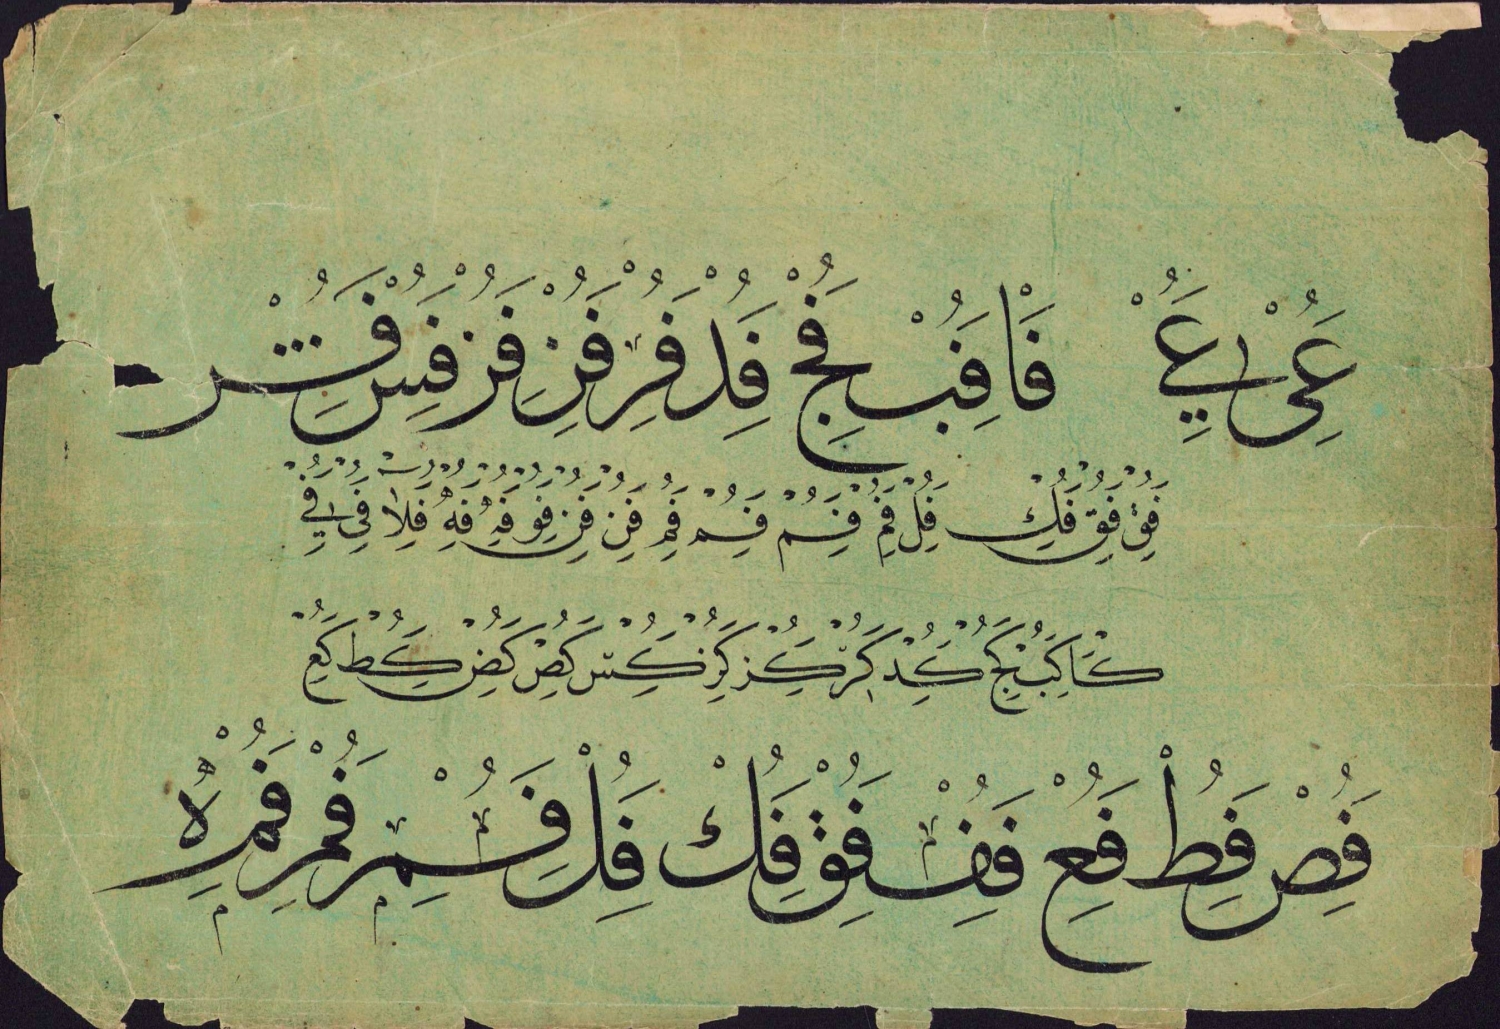 عى عے فا فب فج فد فر فز فر فس فش
فق فق فك فل فم فم فم فم فن فن فو فه فه فلا فى فے
كا كب كج كد كر كز كر كس كص كض كط كع
فص فط فع فف فق فك فل فم فم فمره